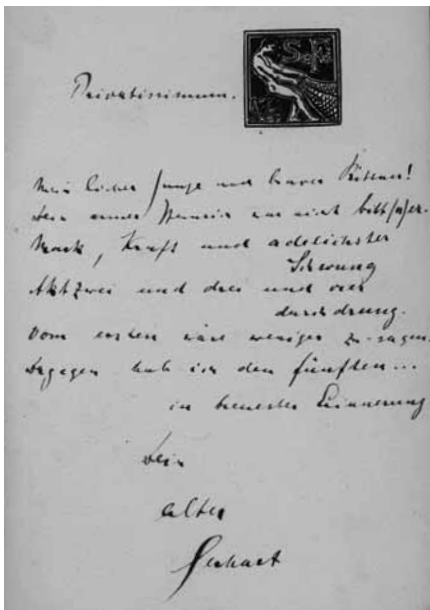 S. F.
Privatissimum.
Mein lieber Junge und braver
Dein armer war nicht
Mark, Kraft und adelichster
Schwung
Akt zwei und drei und vier
durchdrang.
Vom ersten wäre weniger zu sagen.
Dagegen hab ich den fünften...
in treuester Erinnerung
Dein
alter
Gerhart